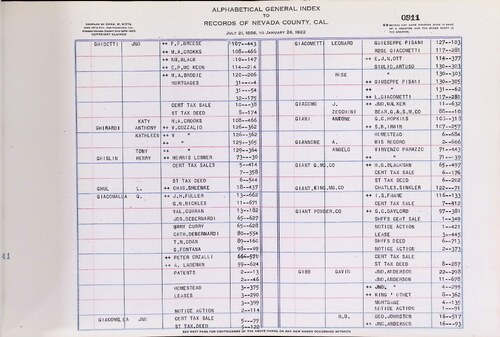 ALPHABETICAL GENERAL INDEX
TO
RECORDS OF NEVADA COUNTY, CAL.
JULY 21, 1856, TO JANUARY 28, 1922
0911
GHIDETTI JNO ++ F.F.BREESE 107-443
++ M.A.CROOKS 108-466
++ NB.BLACK 110-147
++ E.P.MC KEON 114-2
++ H.A.BRODIE 120-206
MORTGAGES 31-4
31-54
32-175
CERT TAX SALE 10-38
ST TAX DEED 5-174
KATY M.A.CROOKS 108-466
GHIRARDI ANTHONY ++ V.GOZZALIO 126-362
KATHLEEN ++ " 126-362
++ " 129-365
TONY ++ " 129-364
GHISLIN HENRY ++ MORRIS LOBNER 73-30
CERT TAX SALES 5-414
7-358
ST TAX DEED 6-544
GHUL L. ++ CHAS.SMUENKE 18-437
GIACOMALDA G. ++ J.H.FULLER 13-662
G.N.BICKLES 11-671
VAL.CURRAN 13-182
JOS.DEBERNARDI 65-627
BRRY CURRY 65-628
CATH.DEBERNARDI 80-554
T.N.ODAN 89-160
G.FONTANA 98-49
++ PETER ORZALLI 664-570
++ A. LAGEMAN 59-624
PATENTS 2-13
2-46
HOMESTEAD 3-375
LEASES 3-290
3-399
NOTICE ACTION 2-114
GIACOMOLDA JNO CERT TAX SALE 5-77
ST TAX.DEED 5-120
GIACOMETTI LEONARD GUISEPPE PISANI 127-103
++ " 117-281
++ E.J.N.OTT 114-377
GIULIO.ARTUSO 130-303
ROSE ++ " 130-303
++ GIUSEPPE PISANI 130-305
++ " 117-281
++ L.GIACOMETTI 117-281
GIACOMO J. ++ JNO.WALKER 11-632
ZEGCHINI BEAR,G.& S.M.CO 88-110
GIANI ANTONE G.C.HOPKINS 88-113
++ S.B.IRWIN 107-257
HOMESTEAD 6-684
GIANNONE A. MIS RECORD 2-666
ANGELO VINVENIO PARAZZO 71-443
++ " 71-39
GIANT G.MG.CO ++ H.G.BLACKMAN 65-457
CERT TAX SALE 6-176
ST TAX DEED 6-252
GIANT,KING,MG.CO CHATLES.SINKLER 122-71
++ I.S.FRANK 116-133
CERT TAX SALE 7-412
GIANT POWDER,CO ++ G.G.GAYLORD 97-381
SHFFS CERT SALE 1-349
NOTICE ACTION 1-421
LEASE 3-445
SHFFS DEED 6-713
NOTICE ACTION 2-373
CERT TAX SALE
ST TAX DEED 8-287
GIBB DAVID JNO.ANDERSON 22-298
JNO,ANDERSON 11-678
++ JNO, " 4-299
++ KING ' OTHET 8-362
MORTGAGE 4-135
NOTICE ACTION 1-91
H.D. GEO.JOHNSTON 18-517
JNO,ANDERSON 16-93